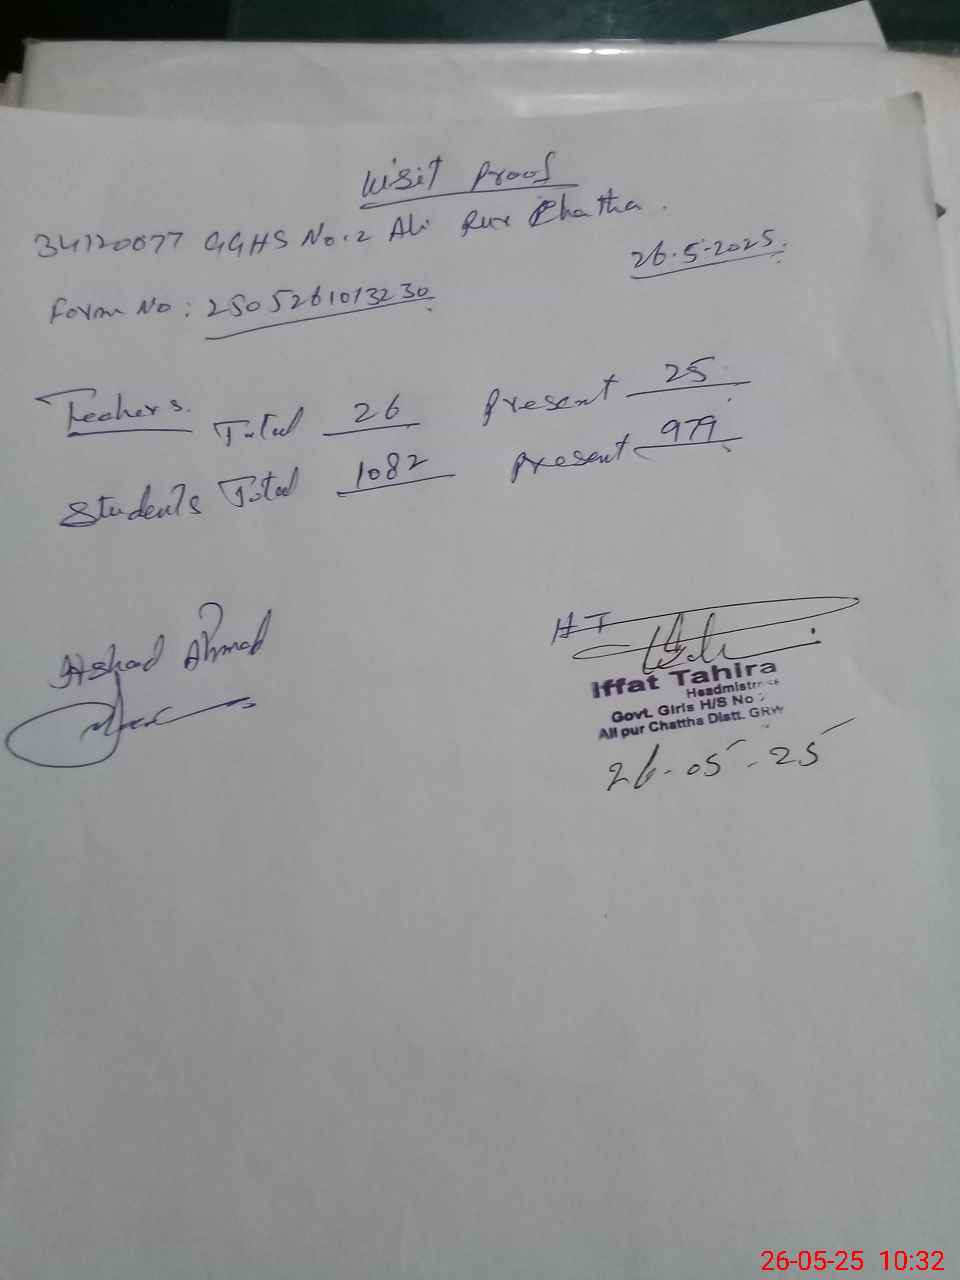 Visit Proof
34120077 GGHS No.2 Ali Pur Chatha.
26.5.2025.
Form No: 2505261013230
Teachers. Total 26 Present 25
Students Total 1082 Present 979
Ashad Ahmad
HT
Iffat Tahira
Headmistress
Govt. Girls H/S No 2
Ali pur Chattha Distt. GRW
26-05-25
26-05-25 10:32